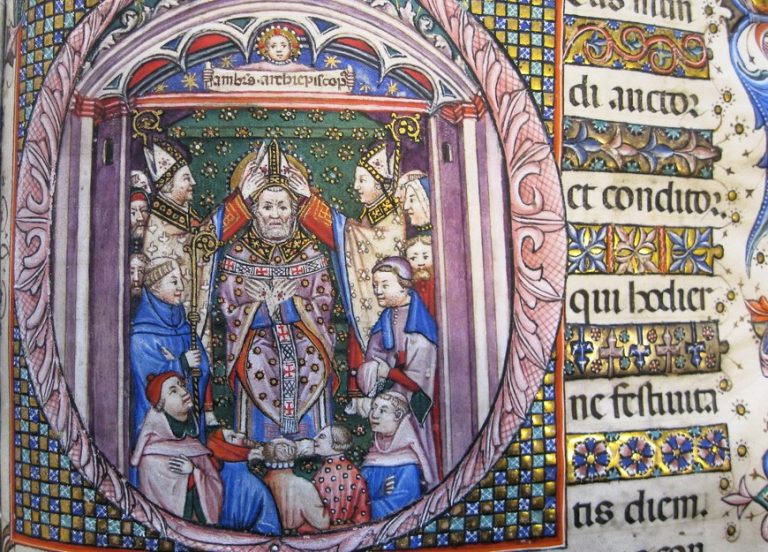 ambrs. archiepiscops
eus mun
di auctor
et conditor
qui hodier
ne festiuita
tis diem.